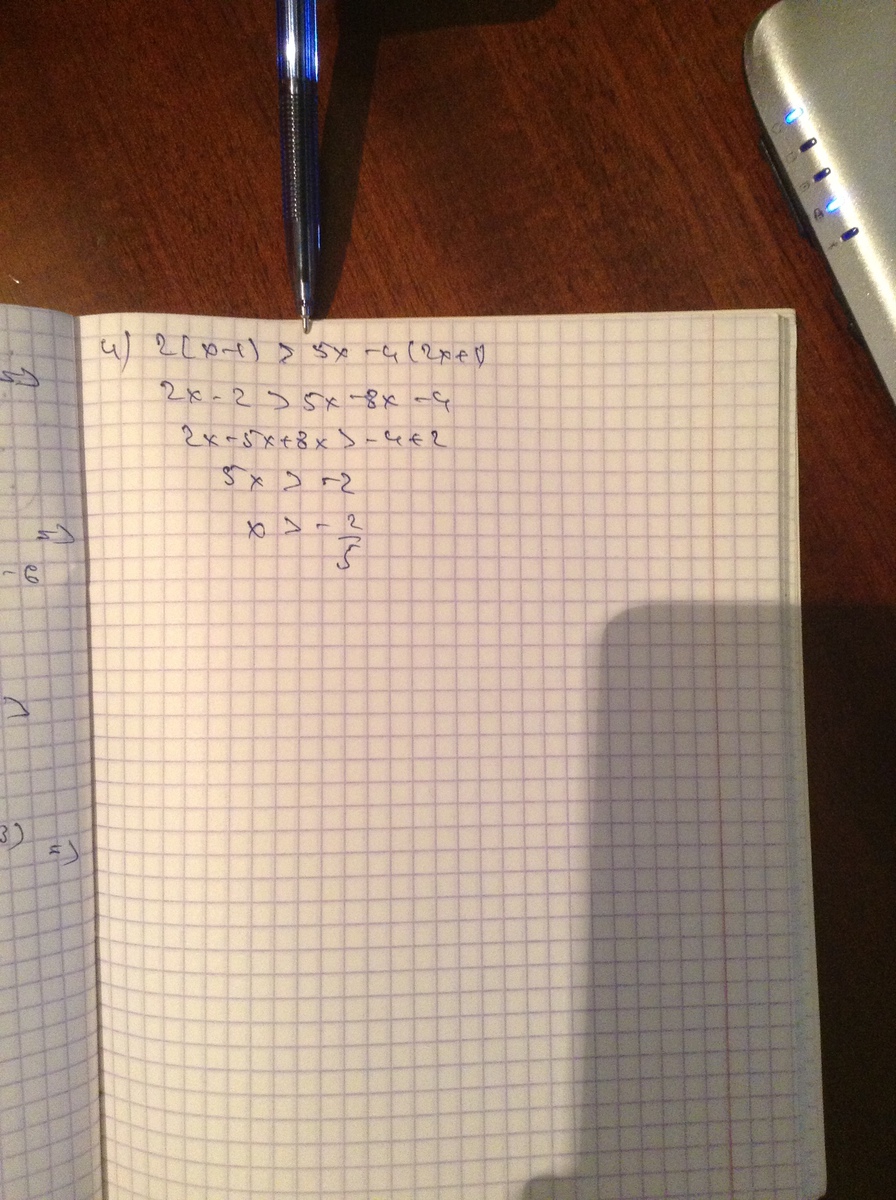 4) 2(x-1) > 5x - 4(2x+1)
2x - 2 > 5x - 8x - 4
2x - 5x + 8x > -4 + 2
5x > -2
x > - 2/5
=>
=>
- 6
>
3) =>